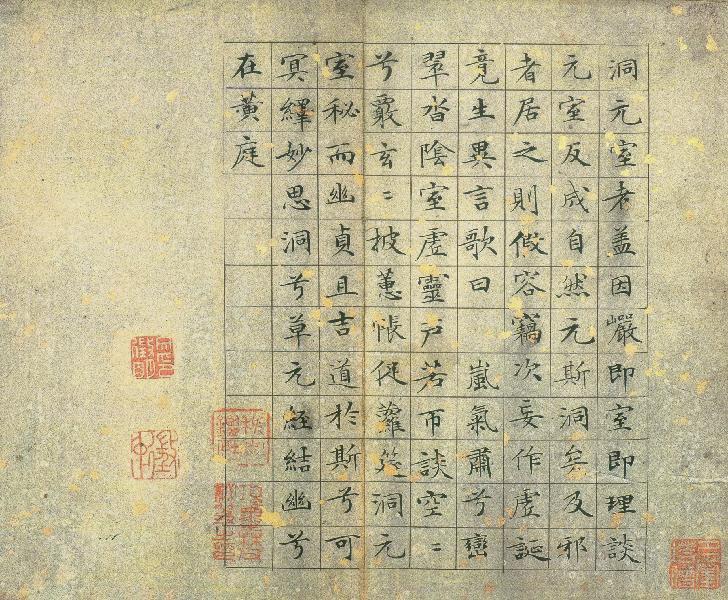 洞元室者盖因巖即室即理談
元室反成自然元斯洞矣及邪
者居之則假容竊次妄作虛誕
竟生異言歌曰 嵐氣肅兮巒
翠沓陰室虛靈戶若帀談空〻
兮覈玄〻披蕙帳促蘿筵洞元
室秘而幽貞且吉道於斯兮可
冥繹妙思洞兮草元經結幽兮
在黃庭